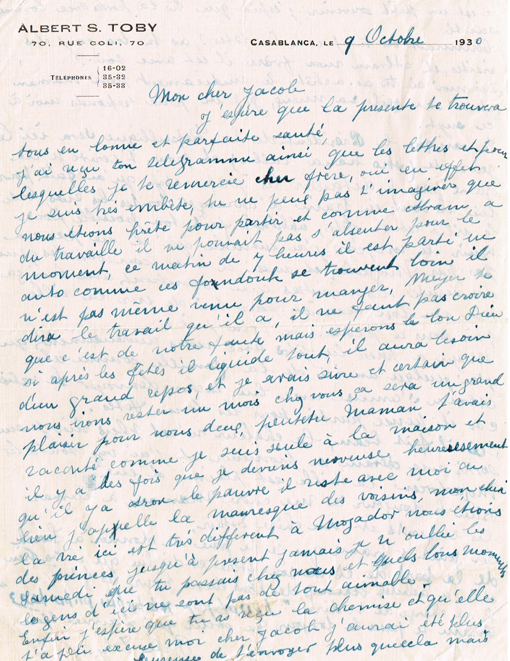 ALBERT S. TOBY
70, RUE COLI, 70
CASABLANCA, LE 9 Octobre 1930
TÉLÉPHONES
16-02
35-32
35-33
Mon cher Jacob
j'espère que la presente te trouvera
tous en bonne et parfaite santé
j'ai reçu ton télégramme ainsi que les lettres et pour
lesquelles je te remercie cher frère, oui en effet
je suis très embêtée, tu ne peus pas t'imaginer que
nous étions prête pour partir et comme a
du travaille il ne pouvait pas s'absenter pour le
moment, ce matin de 4 heures il est parti en
auto comme ces fondouk se trouvent loin il
n'est pas même venu pour manger, Meyer te
dira le travail qu'il a, il ne faut pas croire
que c'est de notre faute mais esperons le bon Dieu
si après les fêtes il liquide tout, il aura besoin
d'un grand repos, et je serais sure et certain que
nous irons rester un mois chez vous ça sera un grand
plaisir pour nous deux, peutetre Maman t'avais
raconté comme je suis seule à la maison et
il y a des fois que je deviens nerveuse heureusement
qu'il y a le pauvre il reste avec moi ou
bien j'appelle la mauresque des voisins, mon cher
la vie ici est très different à Mogador nous étions
des princes, jusqu'à present jamais je n'oublie les
samedi que tu passais chez nous et quels bons moments
les gens d'ici ne sont pas du tout aimable.
Enfin j'espère que tu as reçu la chemise et qu'elle
t'a plu excuse moi cher Jacob j'aurai été plus
heureuse de t'envoyer plus que cela mais